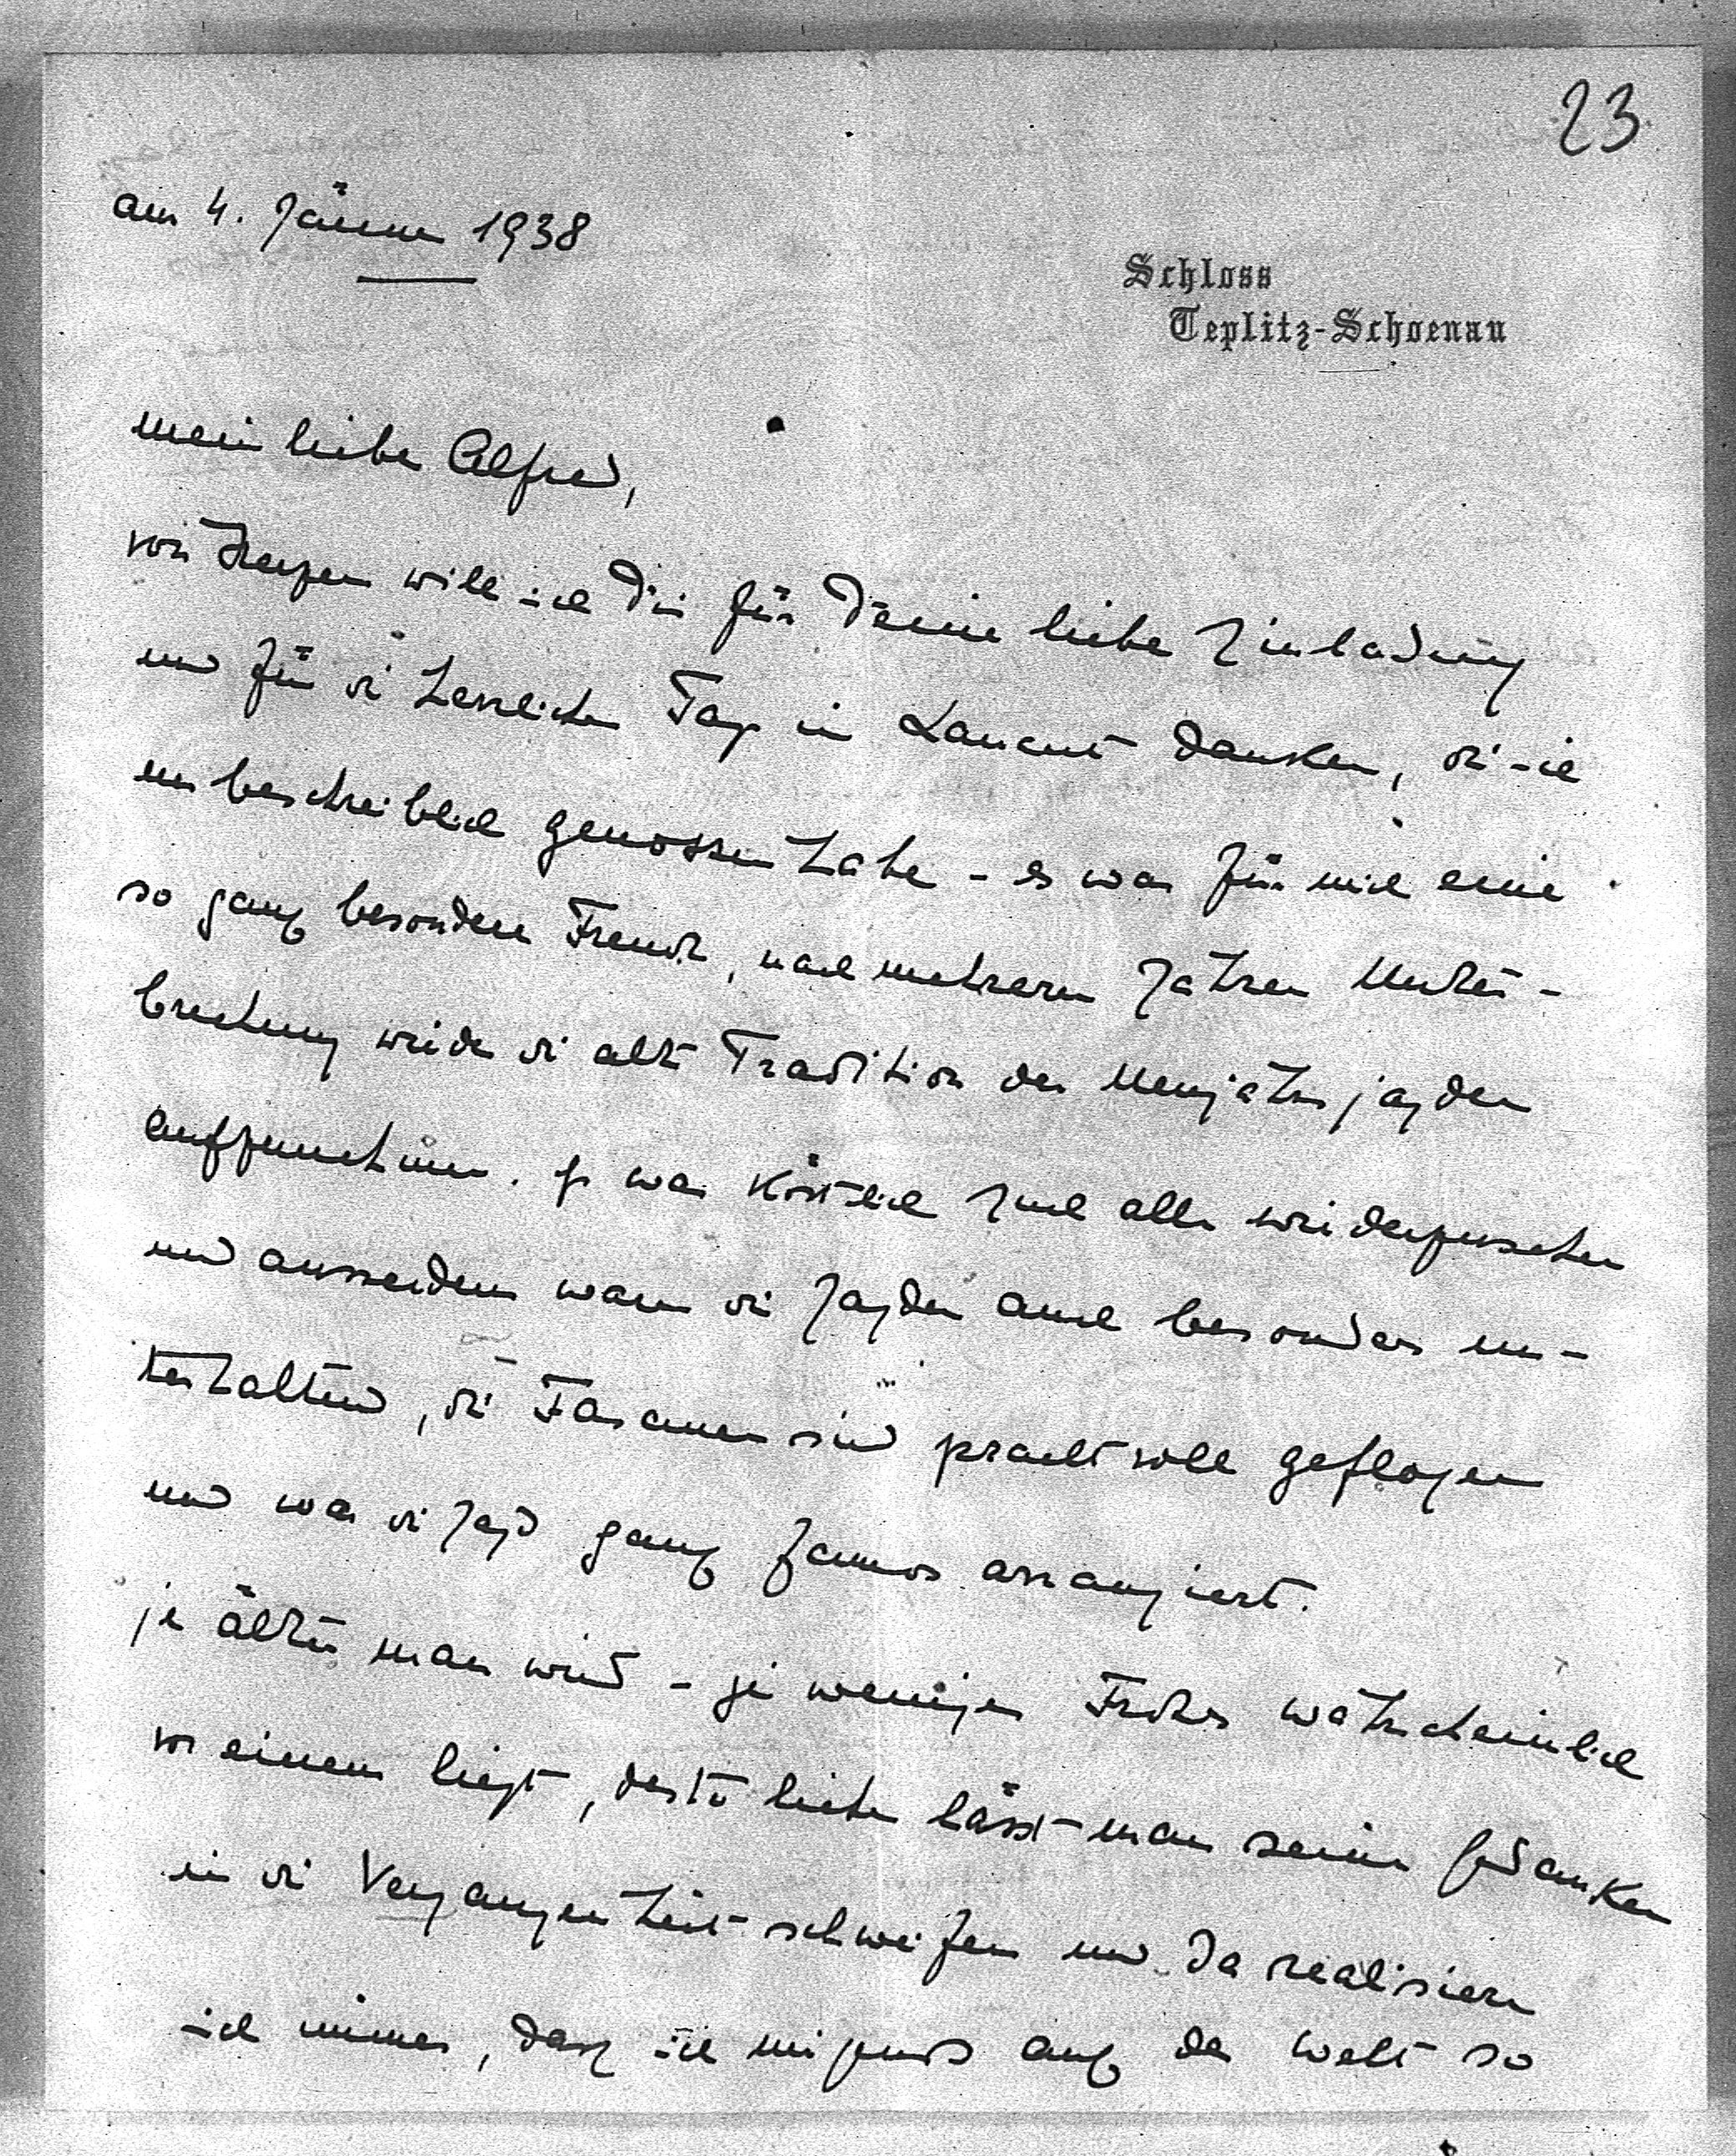 23
am 4. Jänner 1938
Schloss
Teplitz-Schoenau
mein lieber Alfred,
von Herzen will ich Dir für Deine liebe Einladung
und für die herrlichen Tage in Lancut danken, die ich
unbeschreiblich genossen habe - es war für mich eine
so ganz besondere Freude, nach mehreren Jahren Unter-
brechung wieder die alte Tradition der Neujahrsjagden
aufzunehmen. Es war köstlich Euch alle wiederzusehen
und ausserdem waren die Jagden auch besonders un-
terhaltend, die Fasanen sind prachtvoll geflogen
und war die Jagd ganz famos arrangiert.
je älter man wird - je weniger Frohes wahrscheinlich
vor einem liegt, desto lieber lässt man seine Gedanken
in die Vergangenheit schweifen und da realisiere
ich immer, dass ich nirgends auf der Welt so